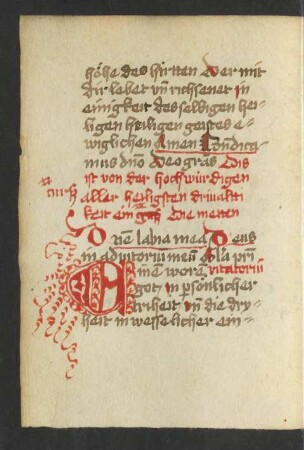 höhe des hirtten Der mit
dir lebet vn̄ richsenet in
einigkeit des selbigen hei-
ligen heiligen geistes e-
wiglichen Amen Bndica-
mus dn̄o Deo gr̄as Dis
ist von der hochwürdigen
aller heiligsten driualti-
keit ein Die metten
Dn̄e labia mea Deus
in adiutoriū meū Gl̄a pr̄i
in eine woren vitatoriū
got in persönlicher
driheit in die dry-
heit in wesselicher ein-